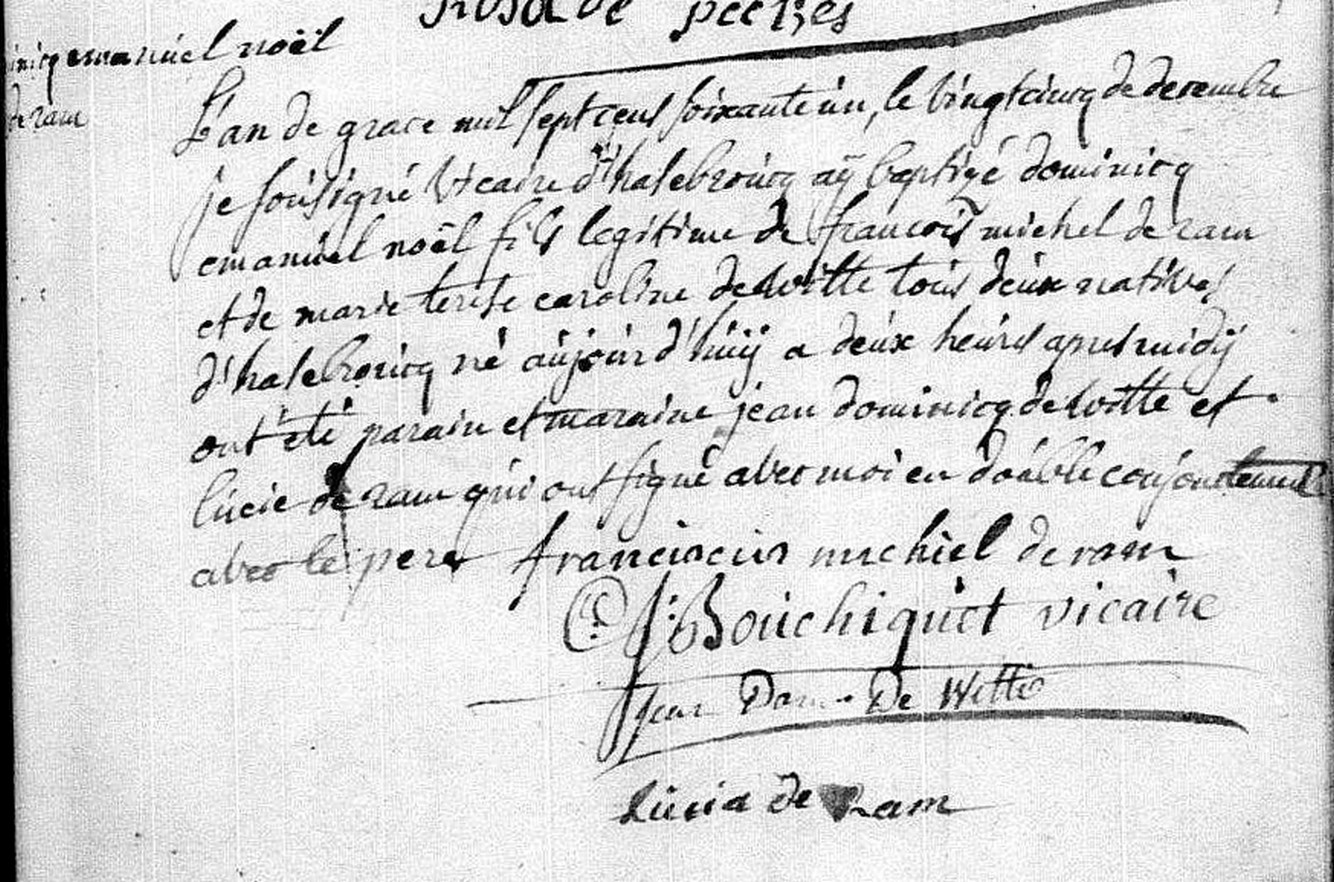 Rosa de peetzes
emanuel noël
de ram
L'an de grace mil sept cens soixante un, le vingt cincq de decembre
je sousigné vicaire d'hasebroucq aÿ baptizé dominicq
emanuel noël fils legitime de francois michel de ram
et de marie terese caroline de witte tous deux natives
d'hasebroucq né aujourd'huÿ a deux heures apres midÿ
ont été parain et maraine jean dominicq de witte et
lucie de ram qui ont signé avec moi en double conjonctement
avec le pere franciscus michiel de ram
J: Bouchiquet vicaire
Jean Dom De Witte
Lucia de Ram